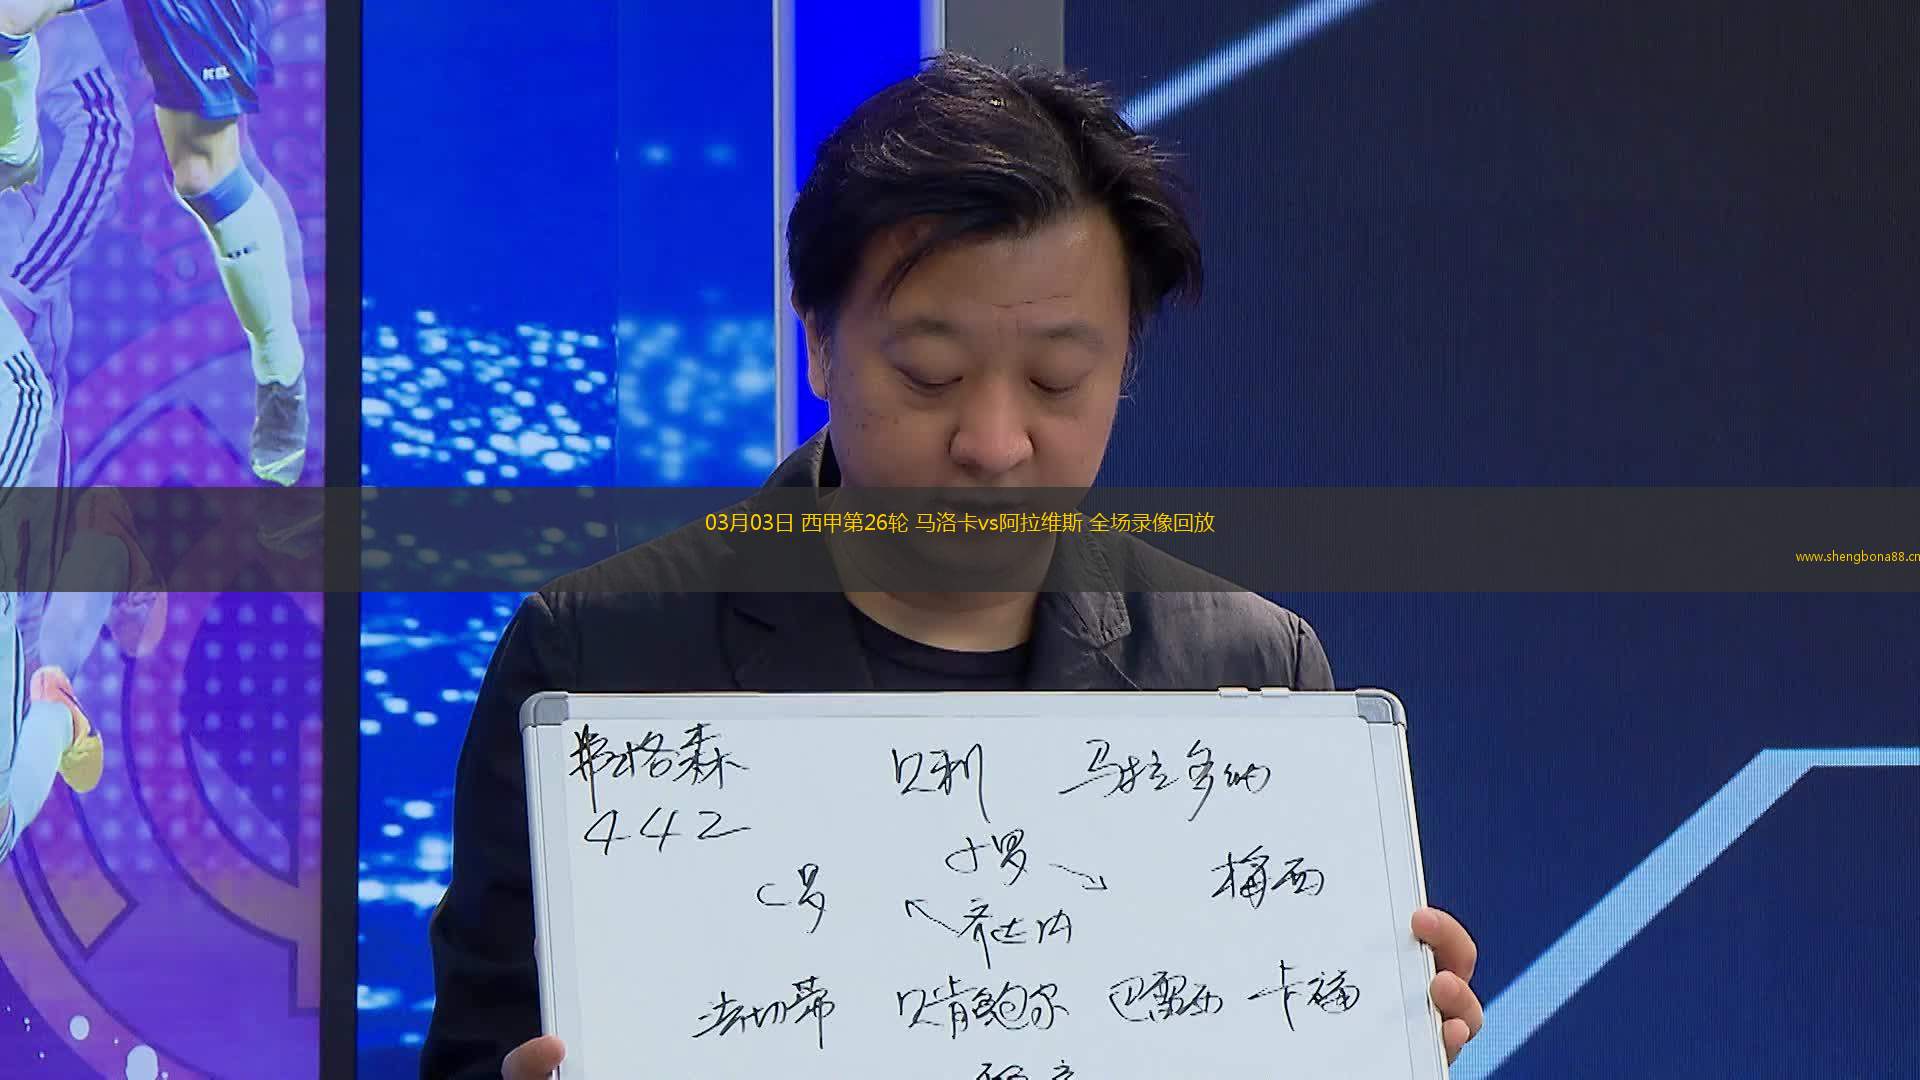 KEL
03月03日 西甲第26轮 马洛卡vs阿拉维斯 全场录像回放
www.shengbona88.cn
弗格森 贝利 马拉多纳
442
小罗
C罗 梅西
齐达内
法切蒂 贝肯鲍尔 巴雷西 卡福